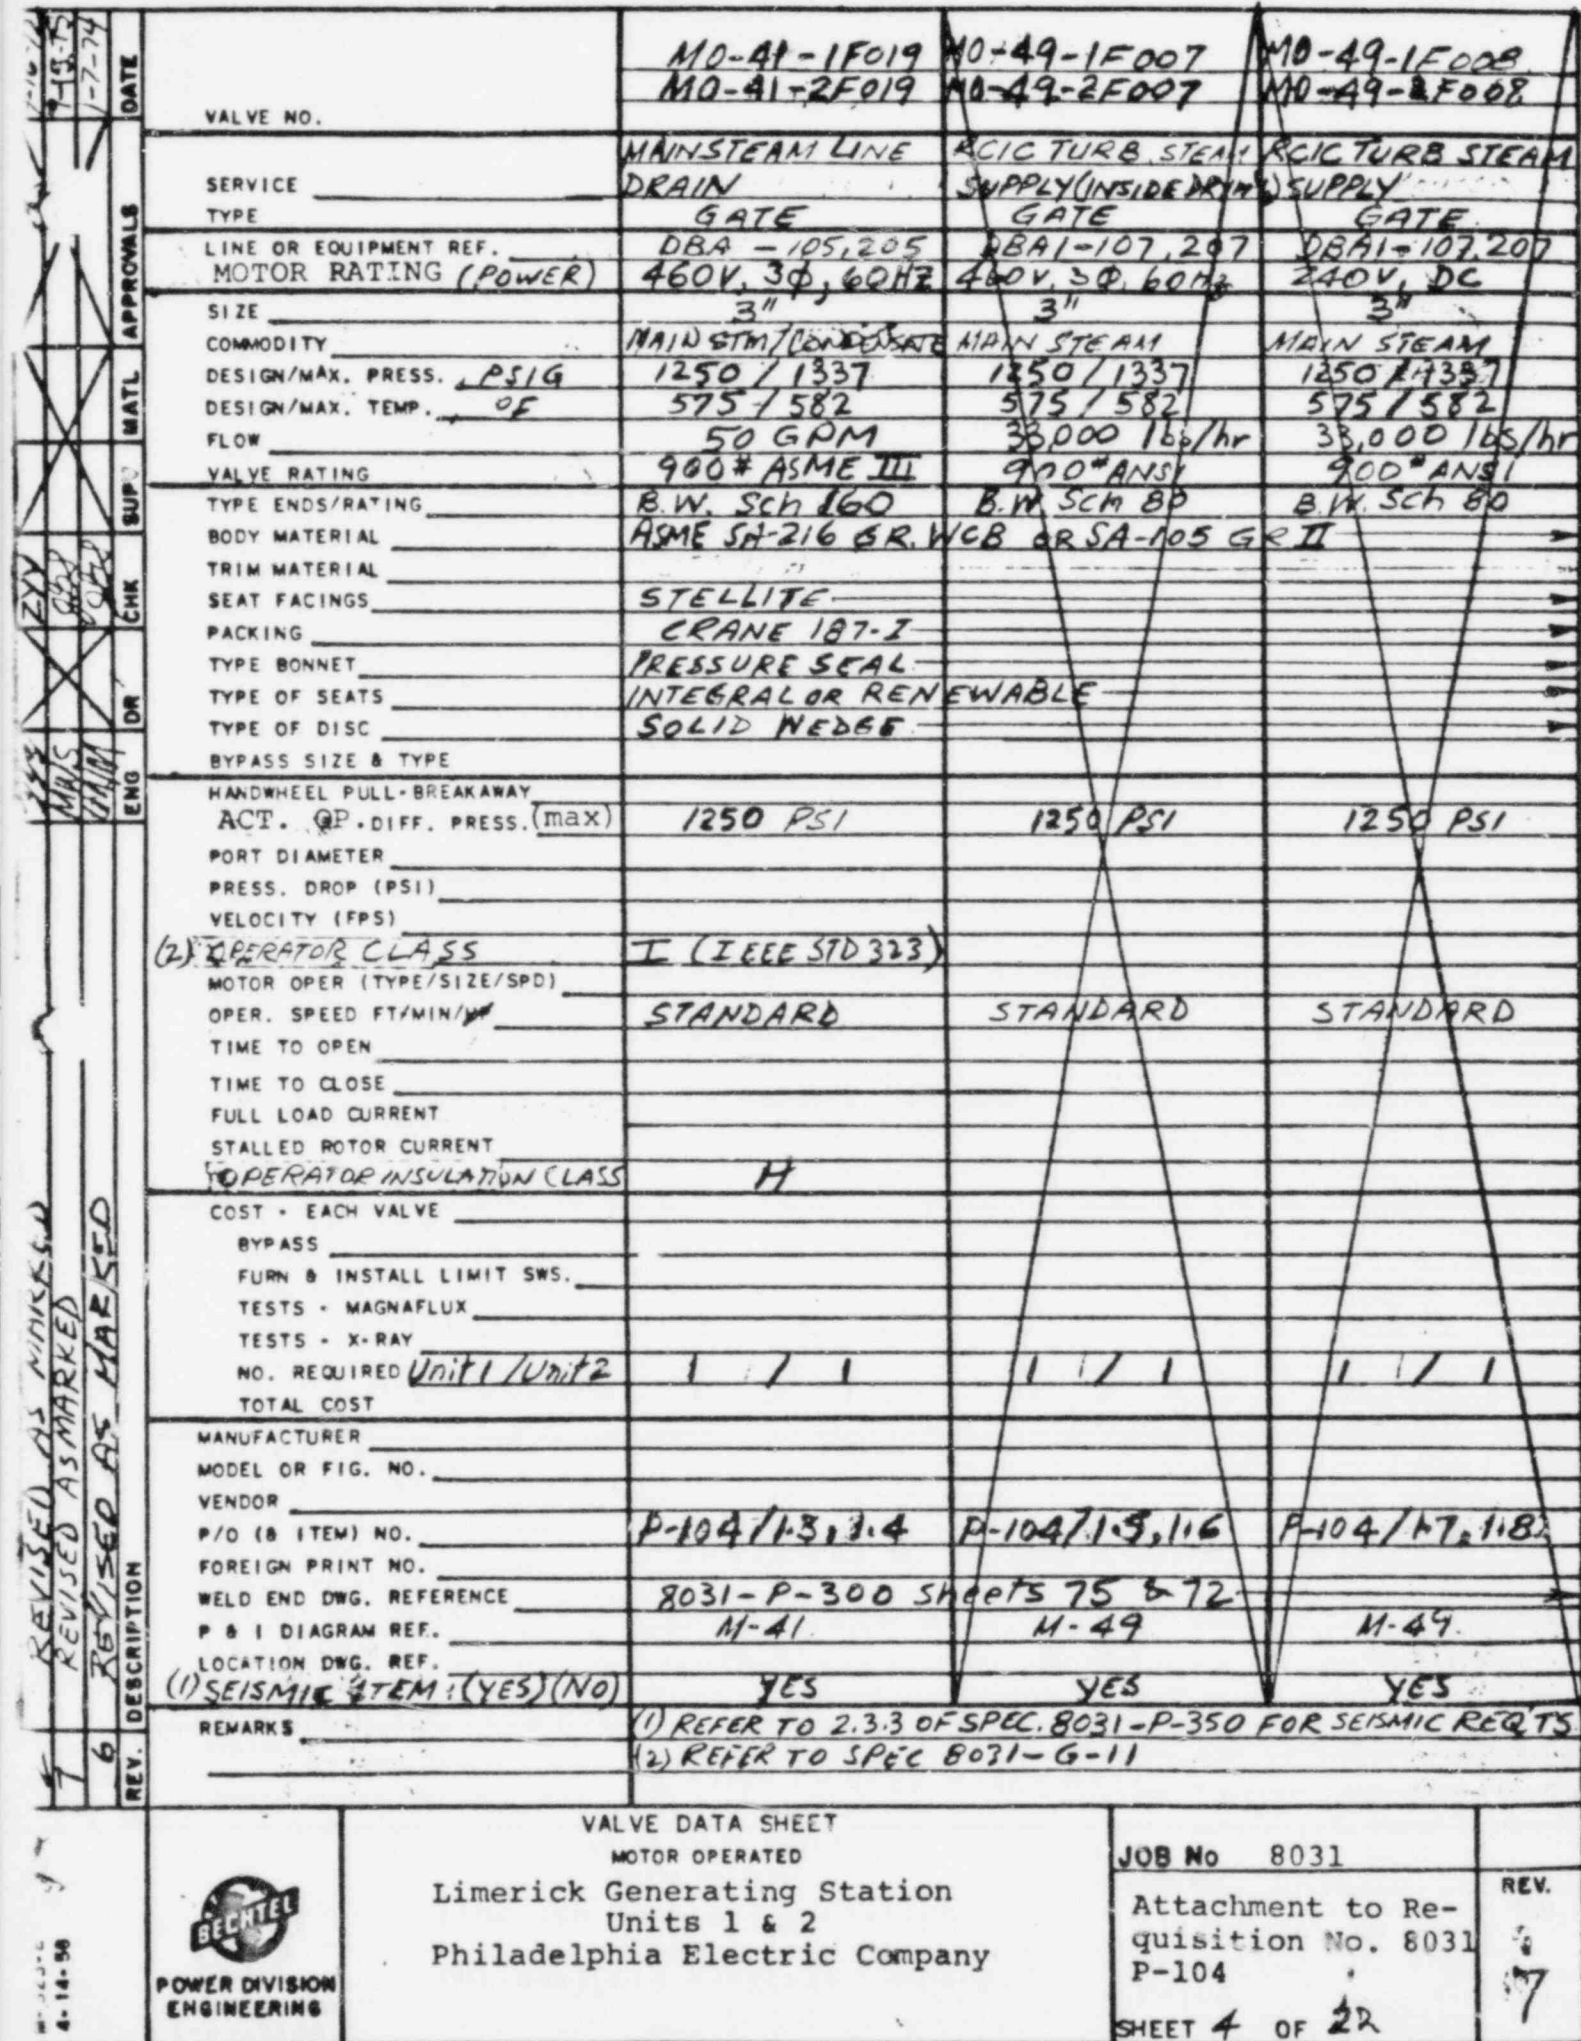 MO-41-1F019 MO-49-1F007 MO-49-1F008
MO-41-2F019 MO-49-2F007 MO-49-2F008
VALVE NO.
MAINSTEAM LINE RCIC TURB. STEAM RCIC TURB STEAM
SERVICE DRAIN SUPPLY (INSIDE DRYW'L) SUPPLY
TYPE GATE GATE GATE
LINE OR EQUIPMENT REF. DBA - 105,205 DBA1-107,207 DBA1-107,207
MOTOR RATING (POWER) 460V, 3Φ, 60HZ 460V, 3Φ, 60HZ 240V, DC
SIZE 3" 3" 3"
COMMODITY MAIN STM/CONDENSATE MAIN STEAM MAIN STEAM
DESIGN/MAX. PRESS. PSIG 1250 / 1337 1250 / 1337 1250 / 1337
DESIGN/MAX. TEMP. °F 575 / 582 575 / 582 575 / 582
FLOW 50 GPM 33,000 lbs/hr 33,000 lbs/hr
VALVE RATING 900# ASME III 900# ANSI 900# ANSI
TYPE ENDS/RATING B.W. Sch 160 B.W. Sch 80 B.W. Sch 80
BODY MATERIAL ASME SA-216 GR. WCB OR SA-105 GR II
TRIM MATERIAL
SEAT FACINGS STELLITE
PACKING CRANE 187-I
TYPE BONNET PRESSURE SEAL
TYPE OF SEATS INTEGRAL OR RENEWABLE
TYPE OF DISC SOLID WEDGE
BYPASS SIZE & TYPE
HANDWHEEL PULL-BREAKAWAY
ACT. OP. DIFF. PRESS. (max) 1250 PSI 1250 PSI 1250 PSI
PORT DIAMETER
PRESS. DROP (PSI)
VELOCITY (FPS)
(2) OPERATOR CLASS I (IEEE STD 323)
MOTOR OPER (TYPE/SIZE/SPD)
OPER. SPEED FT/MIN/ STANDARD STANDARD STANDARD
TIME TO OPEN
TIME TO CLOSE
FULL LOAD CURRENT
STALLED ROTOR CURRENT
OPERATOR INSULATION CLASS H
COST - EACH VALVE
BYPASS
FURN & INSTALL LIMIT SWS.
TESTS - MAGNAFLUX
TESTS - X-RAY
NO. REQUIRED Unit 1 / Unit 2 1 / 1 1 / 1 1 / 1
TOTAL COST
MANUFACTURER
MODEL OR FIG. NO.
VENDOR
P/O (& ITEM) NO. P-104/1.3, 1.4 P-104/1.5, 1.6 P-104/1.7, 1.8
FOREIGN PRINT NO.
WELD END DWG. REFERENCE 8031-P-300 Sheets 75 & 72
P & I DIAGRAM REF. M-41 M-49 M-49
LOCATION DWG. REF.
(1) SEISMIC ITEM: (YES)(NO) YES YES YES
REMARKS (1) REFER TO 2.3.3 OF SPEC. 8031-P-350 FOR SEISMIC REQ'TS
(2) REFER TO SPEC 8031-G-11
REV. DESCRIPTION ENG DR CHK SUPV MATL APPROVALS DATE
REVISED AS MARKED
7 REVISED AS MARKED MWS
6 REVISED AS MARKED 1-7-74
4-14-58
BECHTEL
POWER DIVISION
ENGINEERING
VALVE DATA SHEET
MOTOR OPERATED
Limerick Generating Station
Units 1 & 2
Philadelphia Electric Company
JOB No 8031
Attachment to Re-
quisition No. 8031
P-104
SHEET 4 OF 22
REV.
7